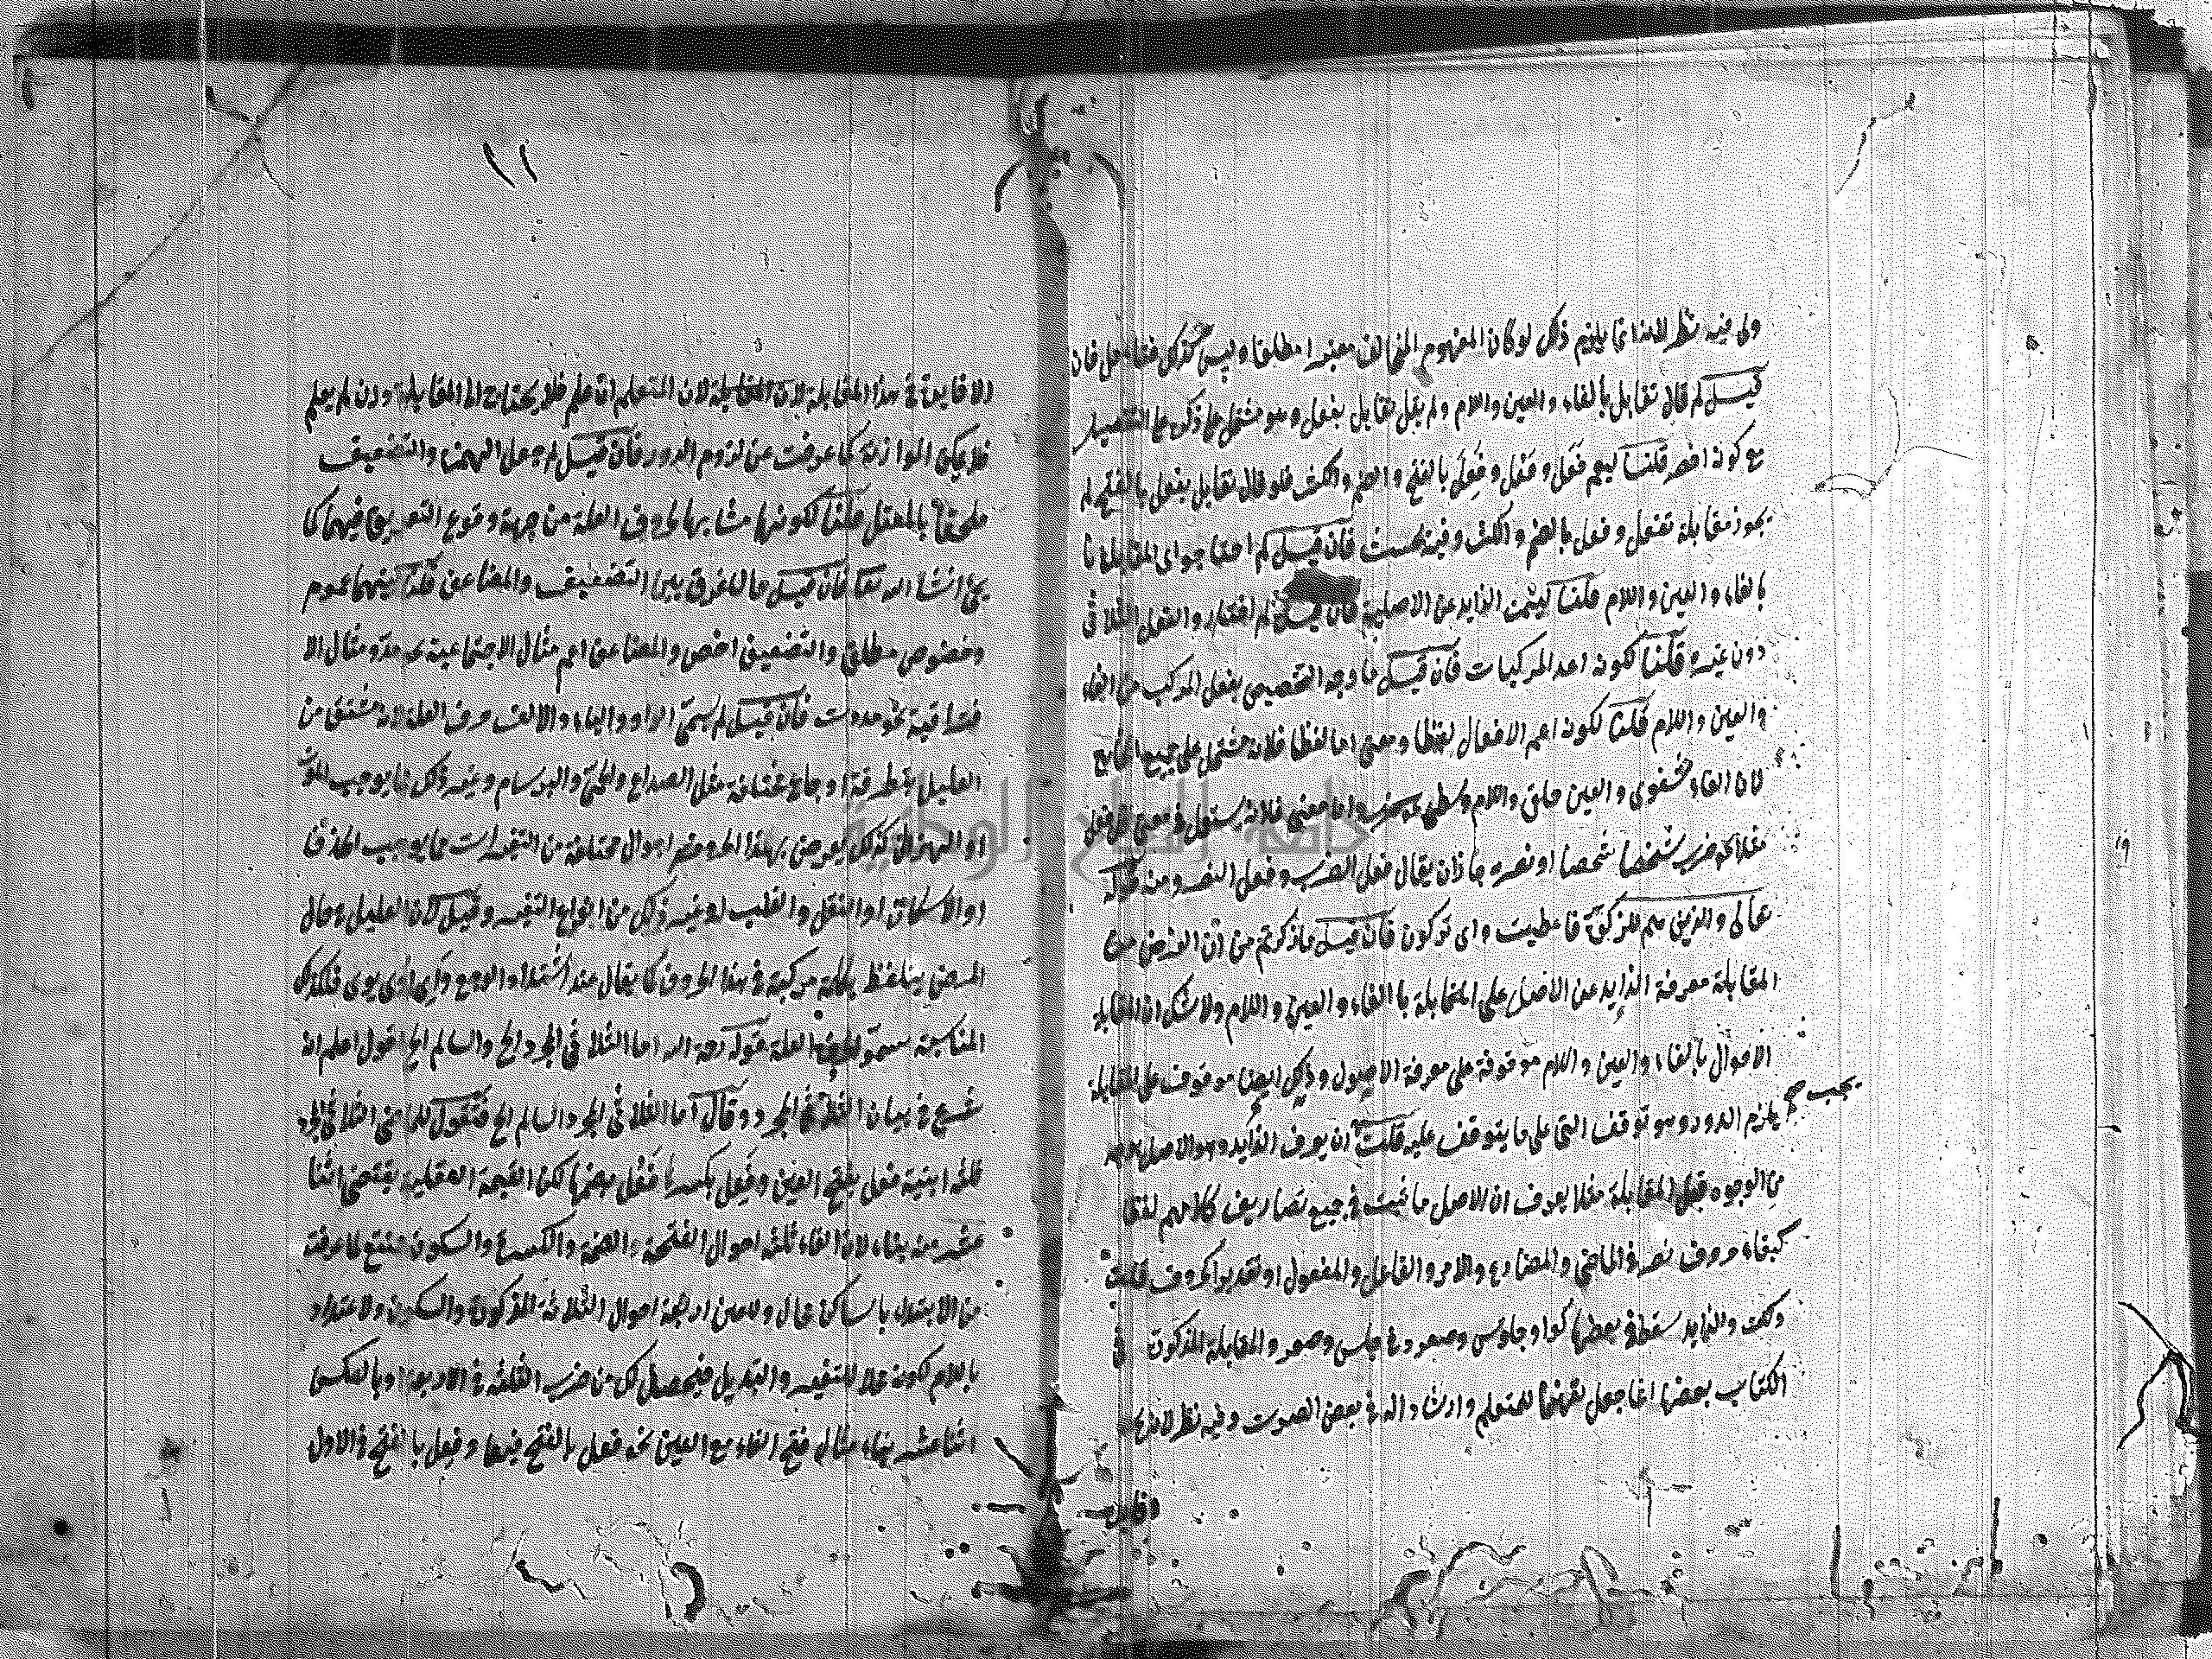 ولى فيه نظر لان هذا انما يلزم ذلك لو كان المفهوم المخالف معتبرا مطلقا وليس كذلك فتأمل فان
قيل لم قال تقابل بالفاء والعين واللام ولم يقل تقابل بفعل وهو مشتمل على ذكر على التفصيل
مع كونه اخصر قلنا ليعم فَعَل وفَعُل وفَعِل بالفتح والضم والكسر فلو قال تقابل بفعل بالفتح لم
يجوز مقابلة تفعل وفعل بالضم والكسر وفيه بحث فان قيل لم احتاجوا الى المقابلة
بالفاء والعين واللام قلنا ليتميز الزايد عن الاصلية فان قيل لم اختار والفعل الثلاثى
دون غيره قلنا لكونه اعد المركبات فان قيل ما وجه التخصيص بفعل المركب من الفاء
والعين واللام قلنا لكونه اعم الافعال لفظا ومعنى اما لفظا فلانه مشتمل على جميع المخارج
لان الفاء شفوى والعين حلق واللام وسطى واما معنى فلانه يستعمل فى معنى كل فعل
مثلا اذا ضرب شخصا شخصا او نصره جاز ان يقال فعل الضرب وفعل النصر ومنه قوله
تعالى والذين هم للزكوة فاعلون اى تزكون فان قيل ما ذكرتم من ان الغرض من
المقابلة معرفة الزايد عن الاصل على المقابلة بالفاء والعين واللام ولا شك ان المقابلة
الاموال بالفاء والعين واللام موقوفة على معرفة الاصول وذلك ايضا موقوف على المقابلة
يلزم الدور وهو توقف الشئ على ما يتوقف عليه قلت يجب صح ان يعرف الزايد وهو الاصل بوجه
من الوجوه قبل المقابلة مثلا يعرف ان الاصل ما ثبت فى جميع تصاريف كلامهم لفظا
كبقاء حروف نصر فى الماضى والمضارع والامر والفاعل والمفعول او تقديرا كحروف قلت
وكلت والزايد سقط فى بعضها كواو جلوس وصعود فى جلس وصعد والمقابلة المذكورة فى
الكتاب بعضها انما جعل تفهيما للمتعلم وارشادا له فى بعض الصور وفيه نظر لانه
لا فايدة
١١
الا فايدة فى هذا المقابلة لان المتعلم ان علم فلا يحتاج الى المقابلة وان لم يعلم
فلا يمكن الموازنة كما عرفت عن لزوم الدور فان قيل لم جعل الهمزة والتضعيف
ملحقا بالمعتل قلنا لكونها مشابها لحروف العلة من جهة وقوع التعريف فيهما كما
يجئ انشا الله تعا فان قيل ما الفرق بين التضعيف والمضاعف قلنا بينهما عموم
وخصوص مطلق والتضعيف اخص والمضاعف اعم مثال الاجتماعية نحو مدّ ومثال الا
فتراقية نحو مددت فان قيل لم يسمى الواو والياء والالف حرف العلة لانه مشتق من
العليل وجاع مختلفة مثل الصداع والحمى والبرسام وغير ذلك ما يوجب الموت
او الهزال كذلك يعرض بهذا الحروف احوال مختلفة من التغيرات ما يوجب الحذف
او الاسكان او النقل والقلب او غير ذلك من انواع التغير وقيل لان العليل وحالى
المرض يتلفظ بكلمة مركبة فى هذا الحروف كما يقال عند اشتداد الوجع واى فلذلك
المناسبة سموا حرف العلة قوله رحمه الله اما الثلاثى المجرد الخ والسالم الخ اقول اعلم انه
شرع فى بيان الثلاثى المجرد وقال اما الثلاثى المجرد السالم الخ فنقول للماضى الثلاثى المجرد
ثلثه ابنية فعل بفتح العين وفَعِل بكسرها فَعُل بضمها لكن القسمة العقلية يقتضى اثنا
عشر منه بناء لان الفاء ثلثه احوال الفتحة والضمة والكسرة والسكون ممتنع لما عرفته
من الابتداء بالساكن محال وللعين اربعة احوال الثلاثة المذكورة والسكون ولا عتداد
باللام لكونه محلا للتغير والتبديل فيحصل لك من ضرب الثلثه فى الاربعة او بالعكس
اثنا عشر بناء مثال فتح الفاء مع العين نحو فعل بالفتح فيهما وفعل بالفتح فى الاول